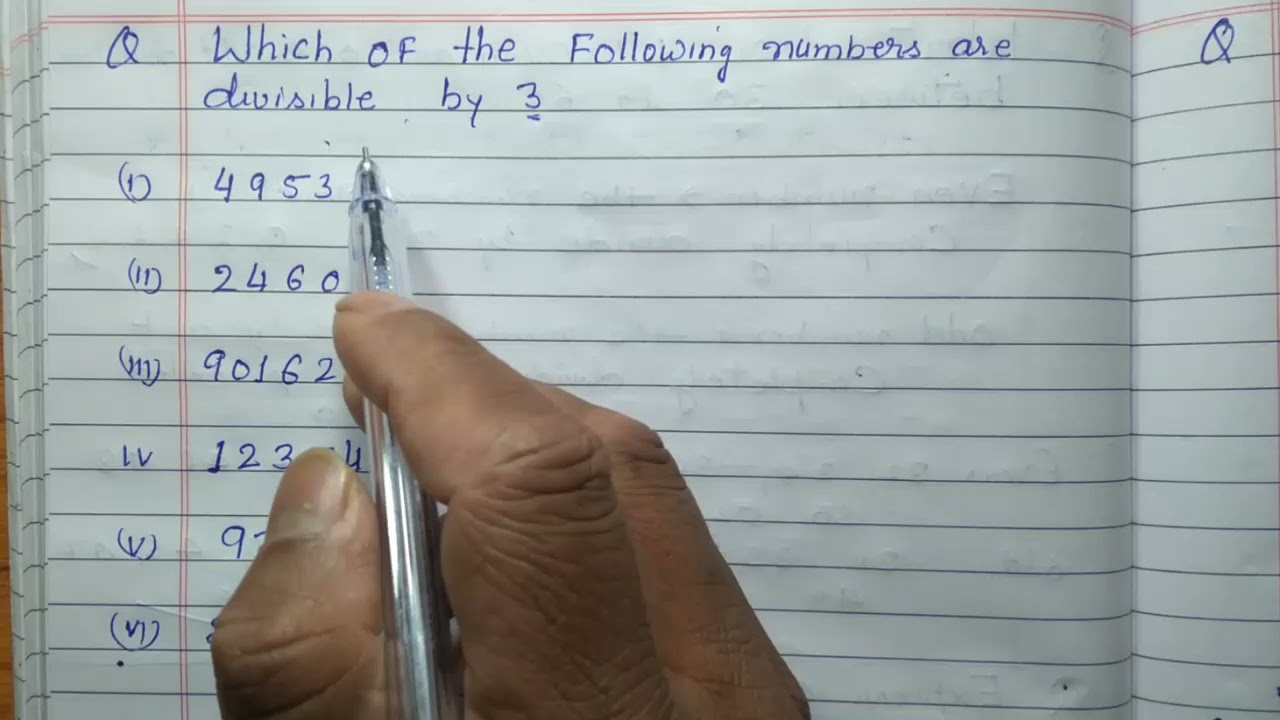 Q Which of the Following numbers are Q
divisible by 3
(i) 4953
(ii) 2460
(iii) 90162
iv
(v)
(vi)